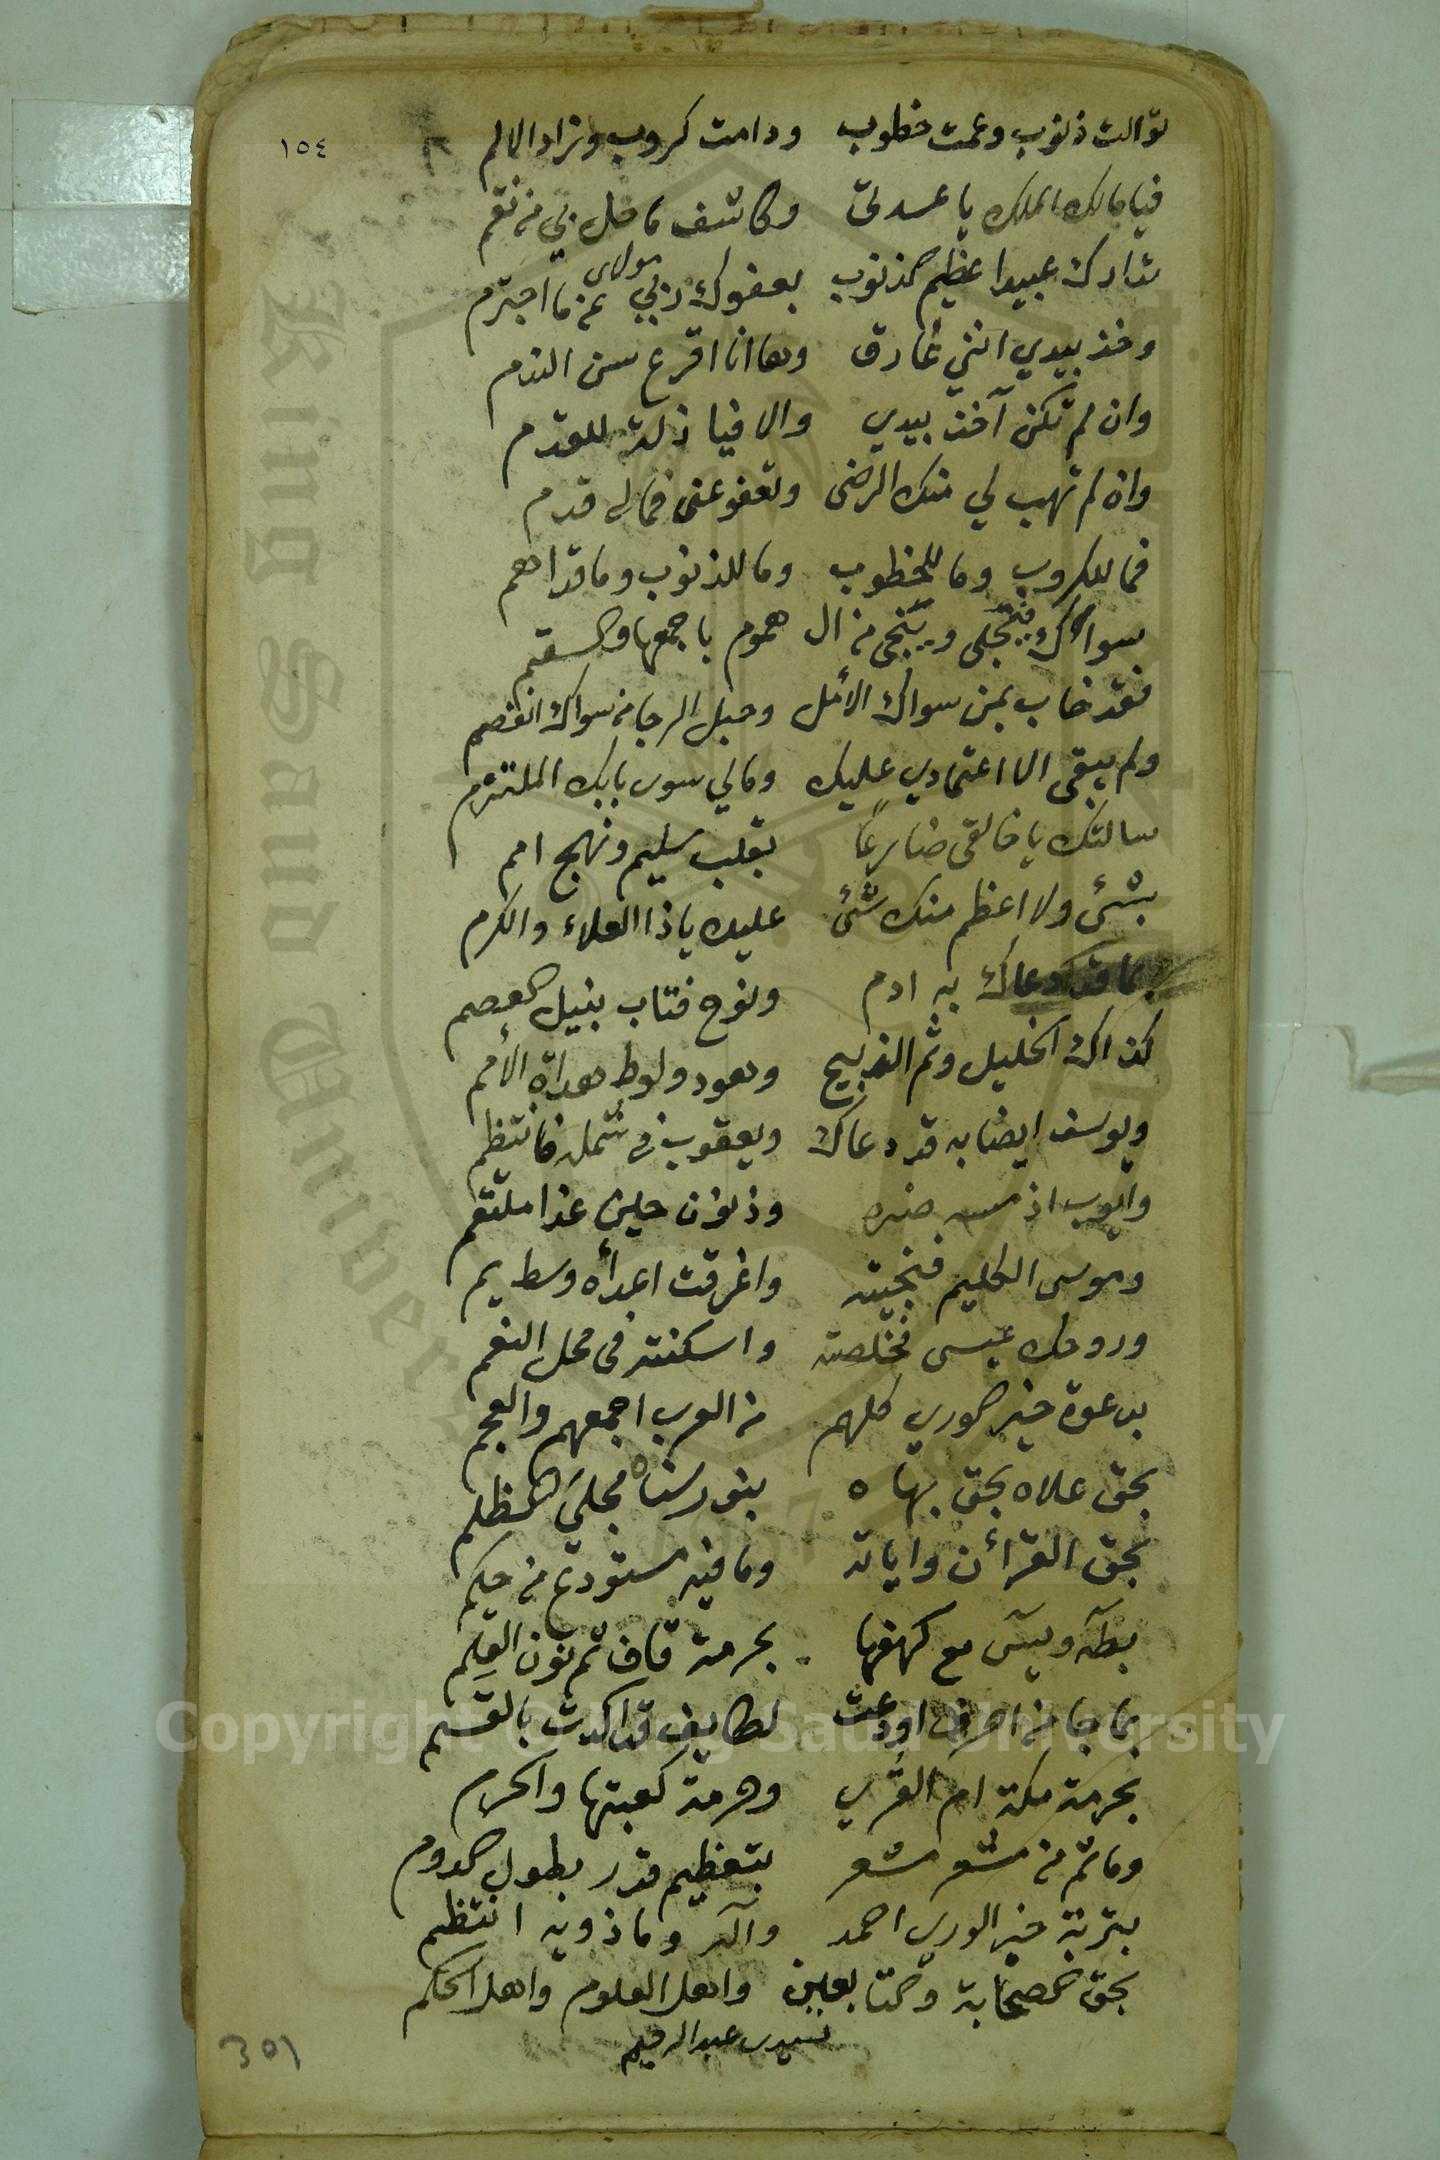 ١٥٤
توالت ذنوب وعمت خطوب ودامت كروب وزاد الالم
فيا مالك الملك يا عدتي وكاشف ما حل بي من نقم
تدارك عبيدا عظيم الذنوب بعفوك ربي مولاي عن ما اجترم
وخذ بيدي انني غارق وها انا اقرع سن الندم
وان لم تكن آخذ بيدي والا فيا زلة للقدم
وان لم تهب لي منك الرضى وتعفو عني فمالي قدم
فما للكروب وما للخطوب وما للذنوب وما قد اهم
سواك فيجلي وينجي من ال هموم باجمعها والسقم
فقد خاب بمن سواك الأمل وحبل الرجا من سواك انفصم
ولم يبقى الا اعتمادي عليك ومالي سوى بابك الملتزم
سالتك يا خالقي ضارعًا بقلب سليم ونهج امم
بشئ ولا اعظم منك شئ عليك يا ذا العلاء والكرم
بما قد دعاك به ادم ونوح فتاب بنيل العصم
كذاك الخليل وثم الذبيح وهود ولوط هداة الأمم
ويوسف ايضا به قد دعاك ويعقوب في شمله فانتظم
وايوب اذ مسه ضره وذنون حين غدا ملتقم
وموسى الكليم فنجيته واغرقت اعدأه وسط يم
وروحك عيسى فخلصته واسكنته في محل النعم
بدعوة خير الوري كلهم من العرب اجمعهم والعجم
بحق علاه بحق بهاه بنور سناه مجلي الظلم
بحق القرأن واياته وما فيه مستودع من حكم
بطآه ويسٓ مع كهفها بحرمة قاف ثم نون القلم
بما جا من احرف اودعت لطايف قد اكدت بالقسم
بحرمة مكة ام القري وحرمة كعبتها والحرم
وما ثم من مشعر مشعر بتعظيم قدر بطول الدوم
بتربة خير الوري احمد وآله وما ذويه انتظم
بحق الصحابة والتابعين واهل العلوم واهل الحكم
لسيدي عبد الرحيم
301
Copyright © King Saud University
King Saud University
1957